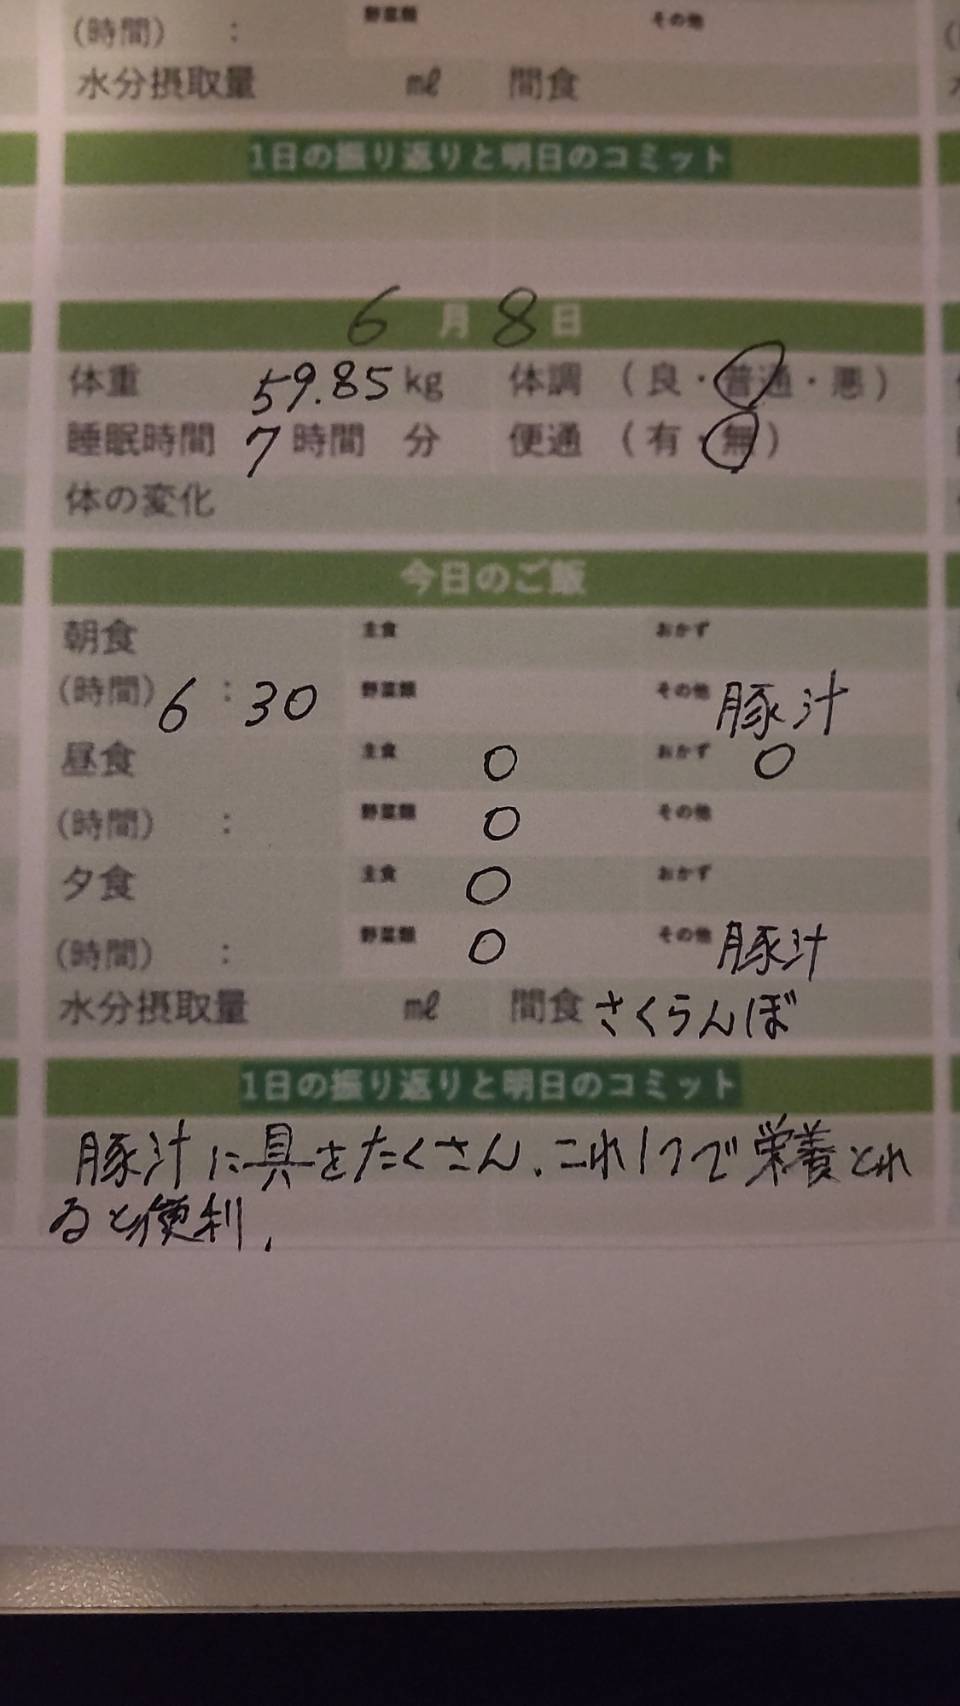 (時間) : 野菜類 その他
水分摂取量 ㎖ 間食
1日の振り返りと明日のコミット
6月8日
体重 59.85kg 体調 (良・普通・悪)
睡眠時間 7時間 分 便通 (有・無)
体の変化
今日のご飯
朝食 主食 おかず
(時間) 6:30 野菜類 その他 豚汁
昼食 主食 ○ おかず ○
(時間) : 野菜類 ○ その他
夕食 主食 ○ おかず
(時間) : 野菜類 ○ その他 豚汁
水分摂取量 ㎖ 間食 さくらんぼ
1日の振り返りと明日のコミット
豚汁に具をたくさん、これ1つで栄養とれ
ると便利。